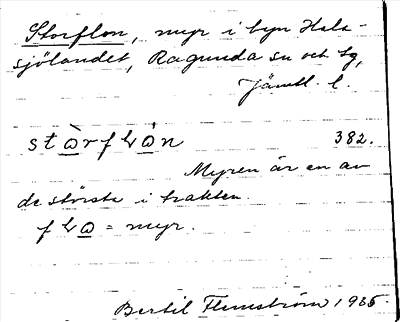 Storflon, myr i byn Hals-
sjölandet, Ragunda sn och tg,
Jämtl. l.
stὼ̲rfLώ̲n 382.
Myren är en av
de största i trakten.
fLω̲ = myr.
Bertil Flemström 1935.